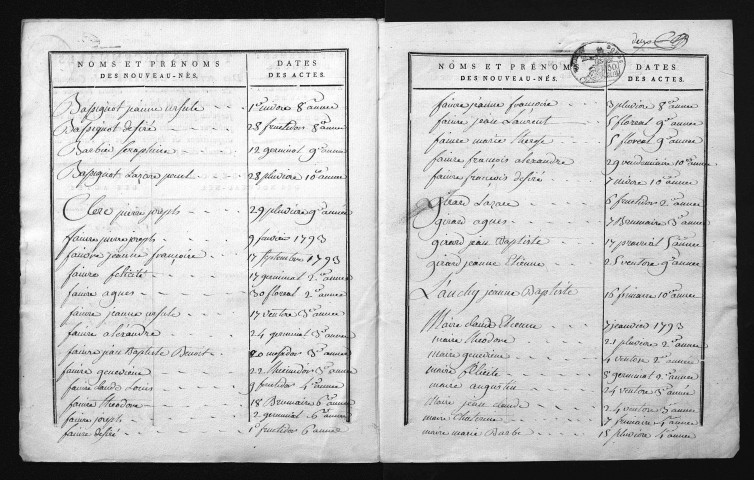 NOMS ET PRÉNOMS DES NOUVEAU-NÉS. DATES DES ACTES.
Bassignot jeanne ursule 1er nivose 8e année
Bassignot desiré 28 fructidor 8e année
Barbier seraphine 12 germinal 9e année
Bassignot Lazare 28 pluviose 10e année
Clerc pierre joseph 29 pluviose 9e année
faivre pierre joseph 9 janvier 1793
faivre jeanne françoise 17 septembre 1793
faivre félicité 17 germinal 2e année
faivre agnes 30 floreal 2e année
faivre jeanne ursule 17 ventose 3e année
faivre alexandre 24 germinal 3e année
faivre jean Baptiste Benoit 20 messidor 3e année
faivre genevieve 22 thermidor 3e année
faivre claude Louis 9 fructidor 4e année
faivre theodore 18 Brumaire 6e année
faivre joseph 2 germinal 6e année
faivre desiré 1er fructidor 6e année
deux
NOMS ET PRÉNOMS DES NOUVEAU-NÉS. DATES DES ACTES.
faivre jeanne françoise 3 pluviose 8e année
faivre jean Laurent 5 floreal 9e année
faivre marie therese 5 floreal 9e année
faivre françois alexandre 29 vendemiaire 10e année
faivre françois desiré 7 nivose 10e année
Girard Lazare 6 fructidor 2e année
girard agnes 7 Brumaire 3e année
girard jean Baptiste 17 prairial 5e année
girard jeanne Etienne 25 ventose 9e année
Lanchy jeanne Baptiste 16 frimaire 10e année
Maire claude Etienne 7 janvier 1793
maire theodore 21 pluviose 2e année
maire genevieve 4 ventose 2e année
maire félicité 8 germinal 2e année
maire augustin 24 ventose 3e année
maire jean claude 24 ventose 3e année
maire 7 frimaire 4e année
maire marie Barbe 15 pluviose 4e année